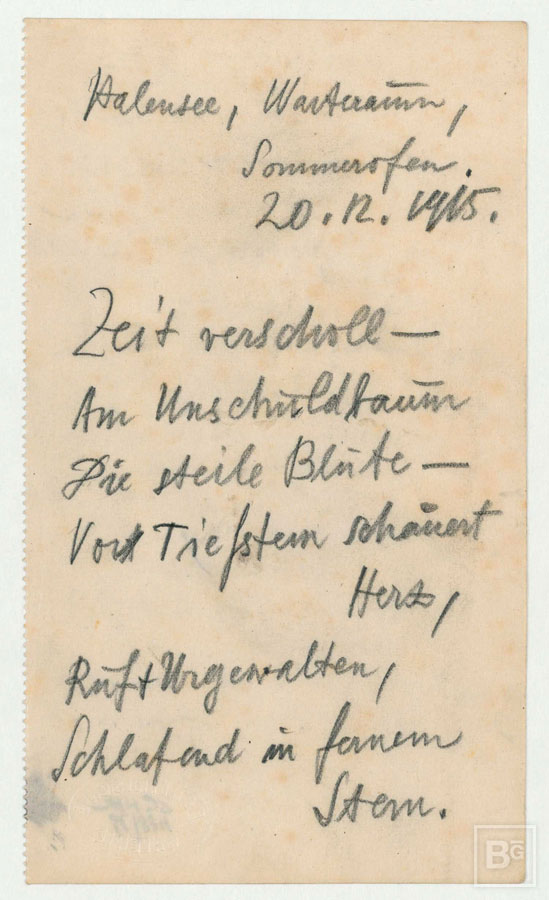 Halensee, Warteraum,
Sommerofen.
20.12.1915.
Zeit verscholl—
Am Unschuldbaum
Die steile Blüte—
Vor Tiefstem schauert
Herz,
Ruft Urgewalten,
Schlafend in fernem
Stern.
BG